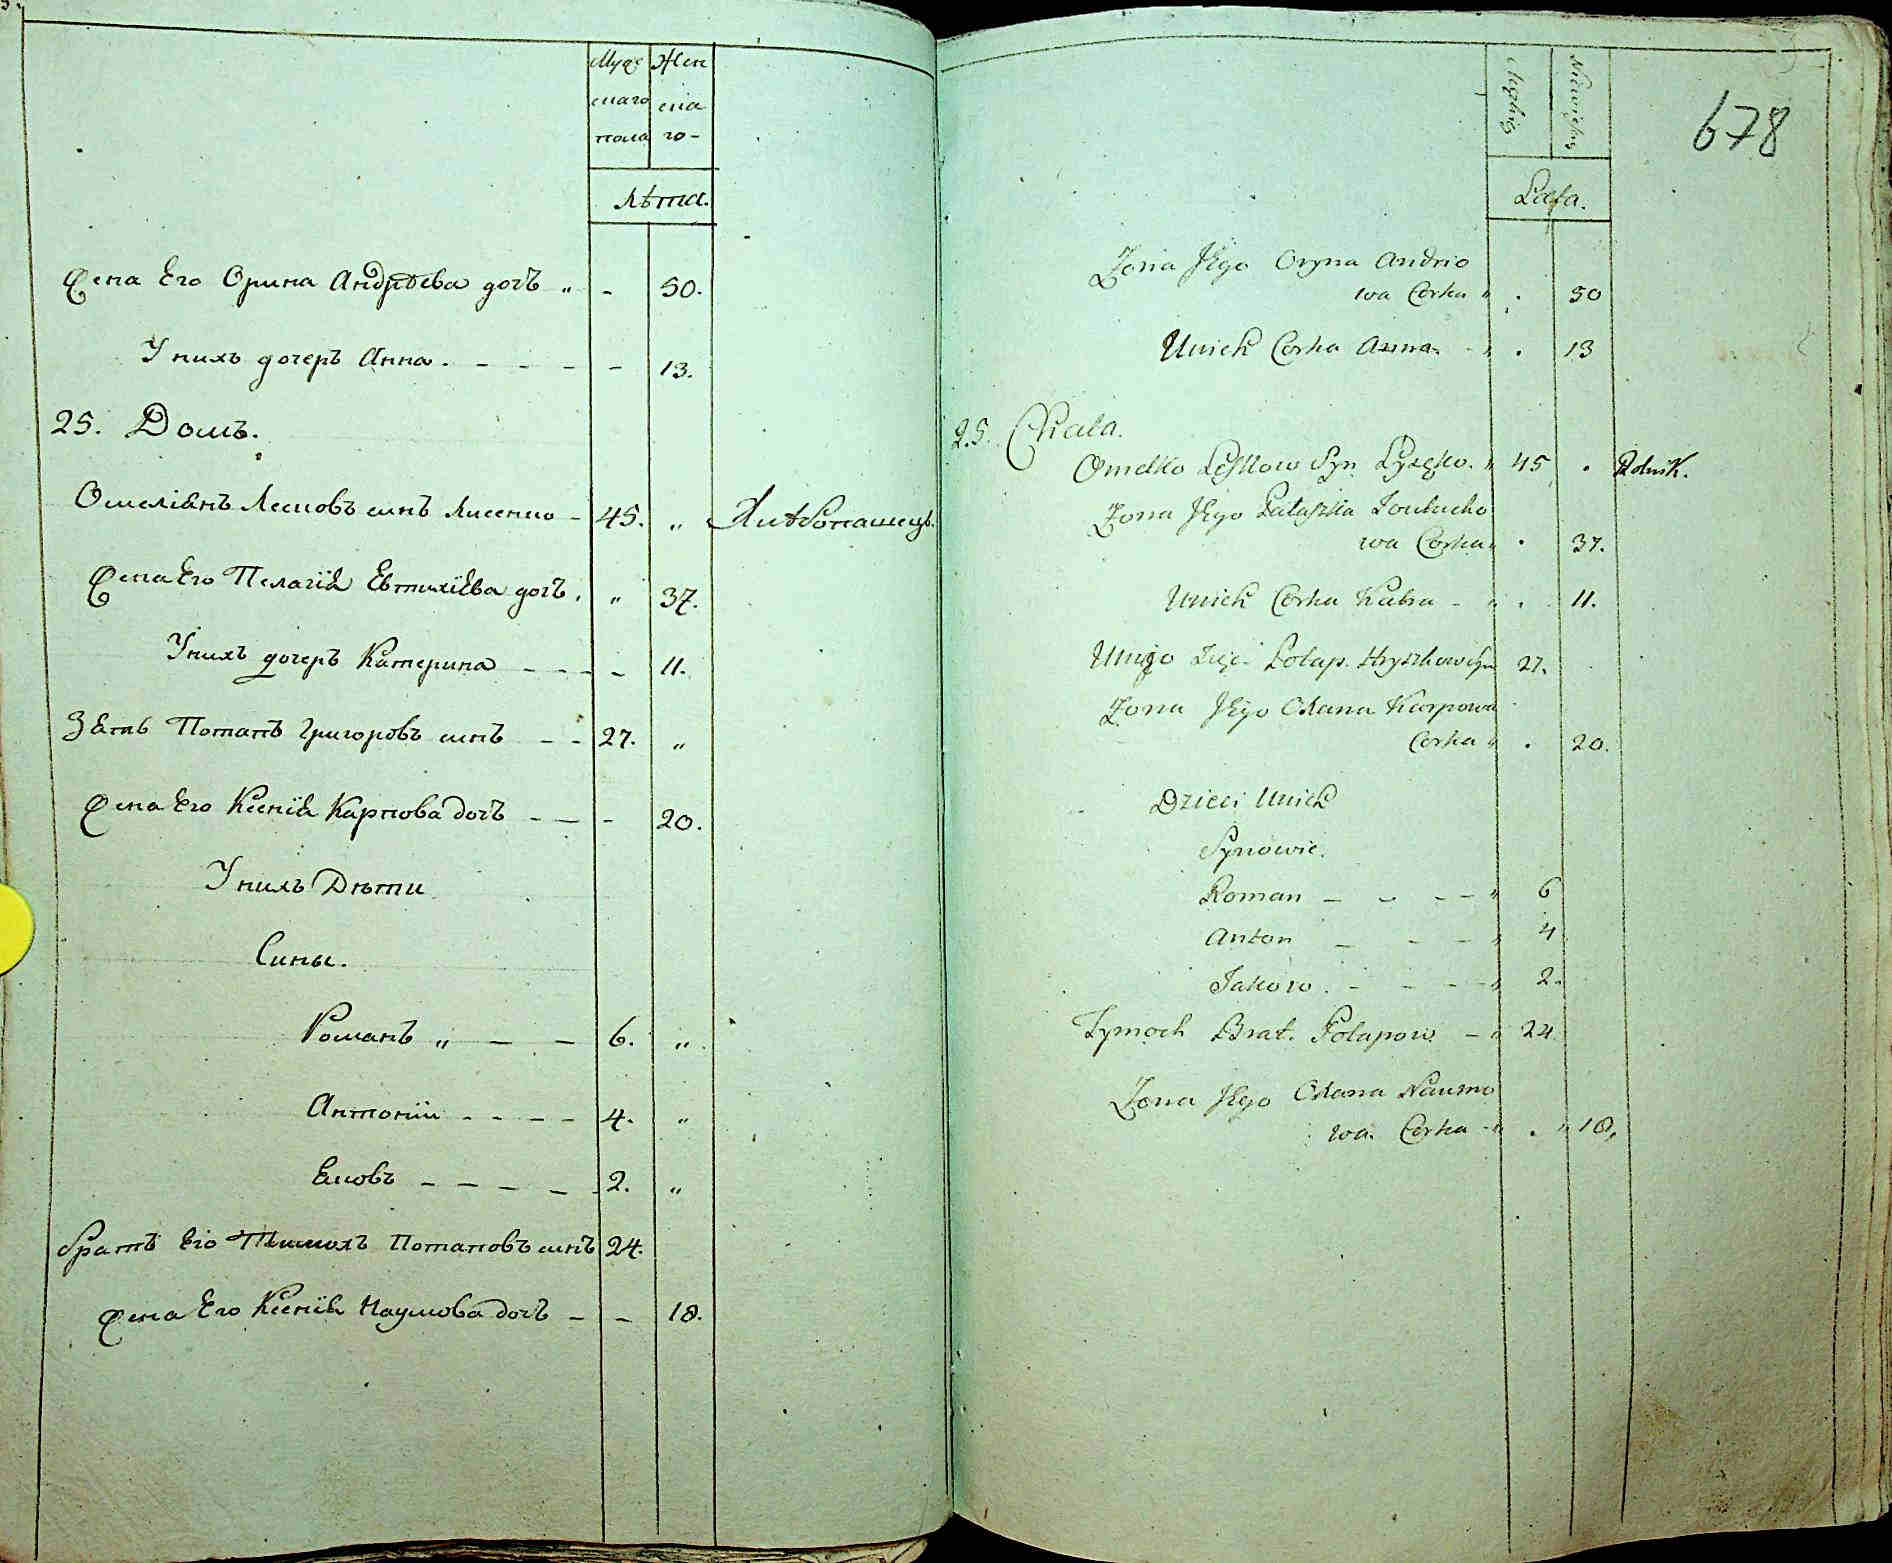 Муже Жен
скаго ска
пола го-
лѣта.
Жена Его Орина Андрѣева дочъ „ - 50.
У нихъ дочеръ Анна. - - - - - 13.
25. Домъ.
Омеліянъ Лесковъ синъ Лисенко - 45. „ Хлѣбопашецъ.
Жена Его Пелагія Евтихіева дочъ. „ 37.
У нихъ дочеръ Катерина - - - - 11.
Зять Потапъ Григоровъ синъ - - 27. „
Жена Его Ксенія Карпова дочъ - - - 20.
У нихъ Дѣти
Сины.
Романъ „ - - 6. „
Антоній - - - - 4. „
Яковъ - - - - - 2. „
Братъ Его Тимохъ Потаповъ синъ 24.
Жена Его Ксенія Наумова дочъ - - 18.
678
Męzkiej Niewieściej
Lata.
Żona Jego Oryna Andrio
wa Corka „ . 50
Unich Corka Anna. - „ . 13
25. Chata.
Omelko Leskow Syn Łysęko. „ 45 . Rolnik.
Żona Jego Pałaszka Jowtucho
wa Corka „ . 37.
Unich Corka Katra - „ . 11.
Unigo Zięć Potap. Hryszkow Syn 27.
Żona Jego Oxana Karpowa
Corka „ . 20.
Dzieci Unich
Synowie.
Roman - - - - „ 6
Anton - - - „ 4
Jakow. - - - - „ 2.
Tymoch Brat. Potapow - „ 24.
Żona Jego Oxana Naumo
wa. Corka - „ . „ 18.